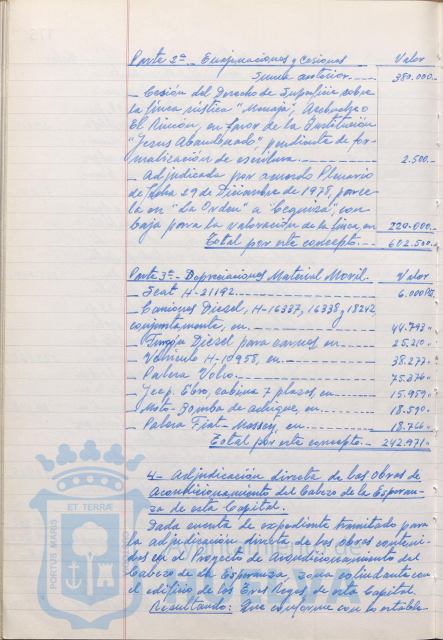 Parte 2ª - Enajenaciones y Cesiones Valor
Suma anterior 380.000.-
- Cesión del Derecho de Superficie sobre
la finca rústica "Monaja", Acebuchao
El Rincón, en favor de la Institución
"Jesus Abandonado", pendiente de for
malización de escritura. 2.500.-
- Adjudicada por acuerdo Plenario
de fecha 29 de Diciembre de 1978, parce
la en "La Orden" a "Cequisa", con
baja para la valoración de la finca en 220.000.-
Total por este concepto.- 602.500.-
Parte 3ª - Depreciaciones Material Movil. Valor
- Seat H-21192 6.000 Pts
- Camiones Diesel, H-16337, 16338 y 18242
conjuntamente, en 44.793 "
- Furgón Diesel para carnes en 25.210 "
- Vehículo H-10958, en 38.277 "
- Palera Volvo 75.376 "
- Jeep Ebro, cabina 7 plazas, en 15.959 "
- Moto-Bomba de achique, en 18.590 "
- Palera Fiat-Massey, en 18.766 "
Total por este concepto.- 242.971 "
4.- Adjudicación directa de las Obras de
Acondicionamiento del Cabezo de la Esperan-
za de esta Capital.
Dada cuenta de expediente tramitado para
la adjudicación directa de las obras conteni-
das en el Proyecto de Acondicionamiento del
Cabezo de la Esperanza, zona colindante con
el edificio de los Tres Reyes de esta Capital.
Resultando: Que conforme con lo estable-
PORTUS MARIS ET TERRAE CUSTODIA
Ayuntamiento de